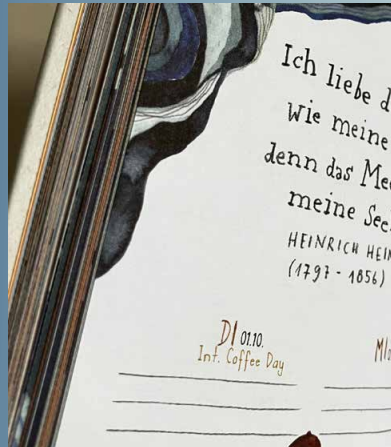 Ich liebe d
Wie meine
denn das Mee
meine See
HEINRICH HEIN
(1797 - 1856)
DI 01.10.
Int. Coffee Day
MI